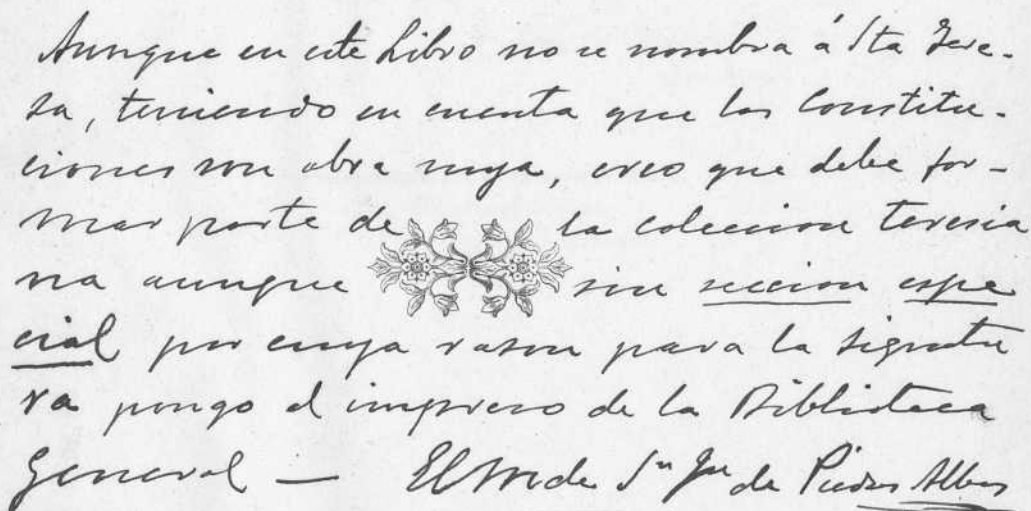 Aunque en este Libro no se nombra á Sta Tere-
sa, teniendo en cuenta que las Constitu-
ciones son obra suya, creo que debe for-
mar parte de la coleccion teresia
na aunque sin seccion espe
cial por cuya rason para la signatu
ra pongo el impreso de la Biblioteca
General — El M de Sn Jn de Piedras Albas